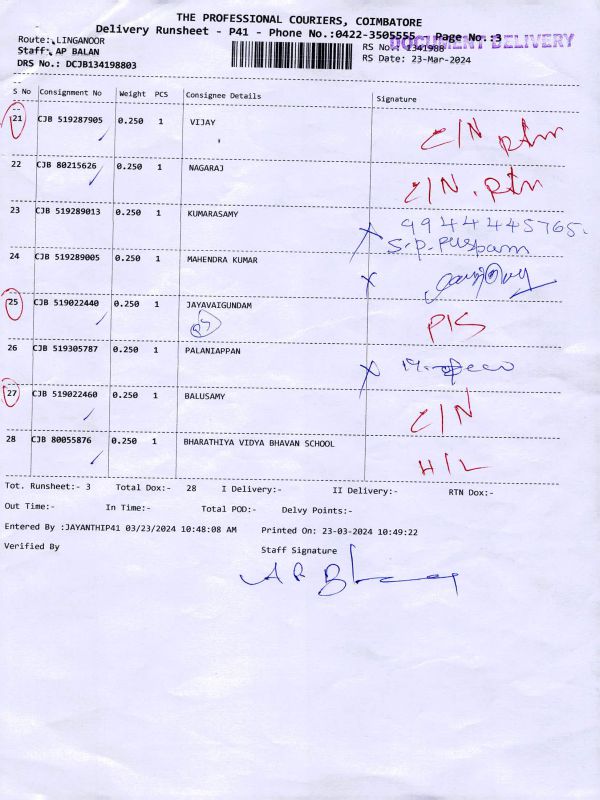 THE PROFESSIONAL COURIERS, COIMBATORE
Delivery Runsheet - P41 - Phone No.:0422-3505555 Page No.:3
DOCUMENT DELIVERY
Route: LINGANOOR RS No.: 1341988
Staff: AP BALAN RS Date: 23-Mar-2024
DRS No.: DCJB134198803
S No Consignment No Weight PCS Consignee Details Signature
21 CJB 519287905 0.250 1 VIJAY C/N RTN
22 CJB 80215626 0.250 1 NAGARAJ C/N. RTN
23 CJB 519289013 0.250 1 KUMARASAMY X 9944445765.
S.P. Puspam
24 CJB 519289005 0.250 1 MAHENDRA KUMAR X
25 CJB 519022440 0.250 1 JAYAVAIGUNDAM
26 CJB 519305787 0.250 1 PALANIAPPAN X
27 CJB 519022460 0.250 1 BALUSAMY C/N
28 CJB 80055876 0.250 1 BHARATHIYA VIDYA BHAVAN SCHOOL H/L
Tot. Runsheet:- 3 Total Dox:- 28 I Delivery:- II Delivery:- RTN Dox:-
Out Time:- In Time:- Total POD:- Delvy Points:-
Entered By :JAYANTHIP41 03/23/2024 10:48:08 AM Printed On: 23-03-2024 10:49:22
Verified By Staff Signature